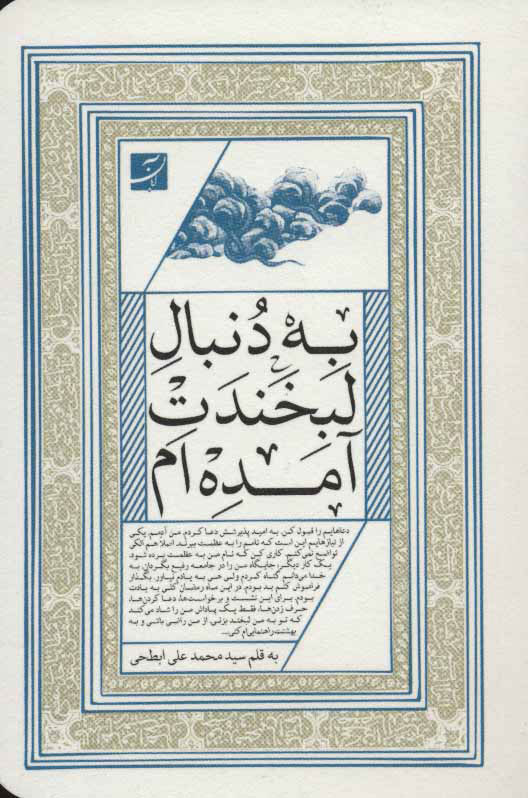 به دُنبالِ
لَبخَندَت
آمَدِه‌اَم
دعاهایم را قبول کن. به امید پذیرشش دعا کردم. من آدمم. یکی
از نیازهایم این است که نامم را به عظمت ببرند. اصلا هم الکی
تواضع نمی‌کنم. کاری کن که نام من به عظمت برده شود.
یک کار دیگر، جایگاه من را در جامعه رفیع بگردان. به
خدا می‌دانم گناه کردم ولی هی به یادم نیاور. بگذار
فراموش کنم بد بودم. در این ماه رمضان کلی به یادت
بودم. برای این نشست و برخواست‌ها، دعا کردن‌ها،
حرف زدن‌ها، فقط یک پاداش من را شاد می‌کند
که تو به من لبخند بزنی. از من راضی باشی و به
بهشتت راهنمایی‌ام کنی...
به قلم سید محمد علی ابطحی